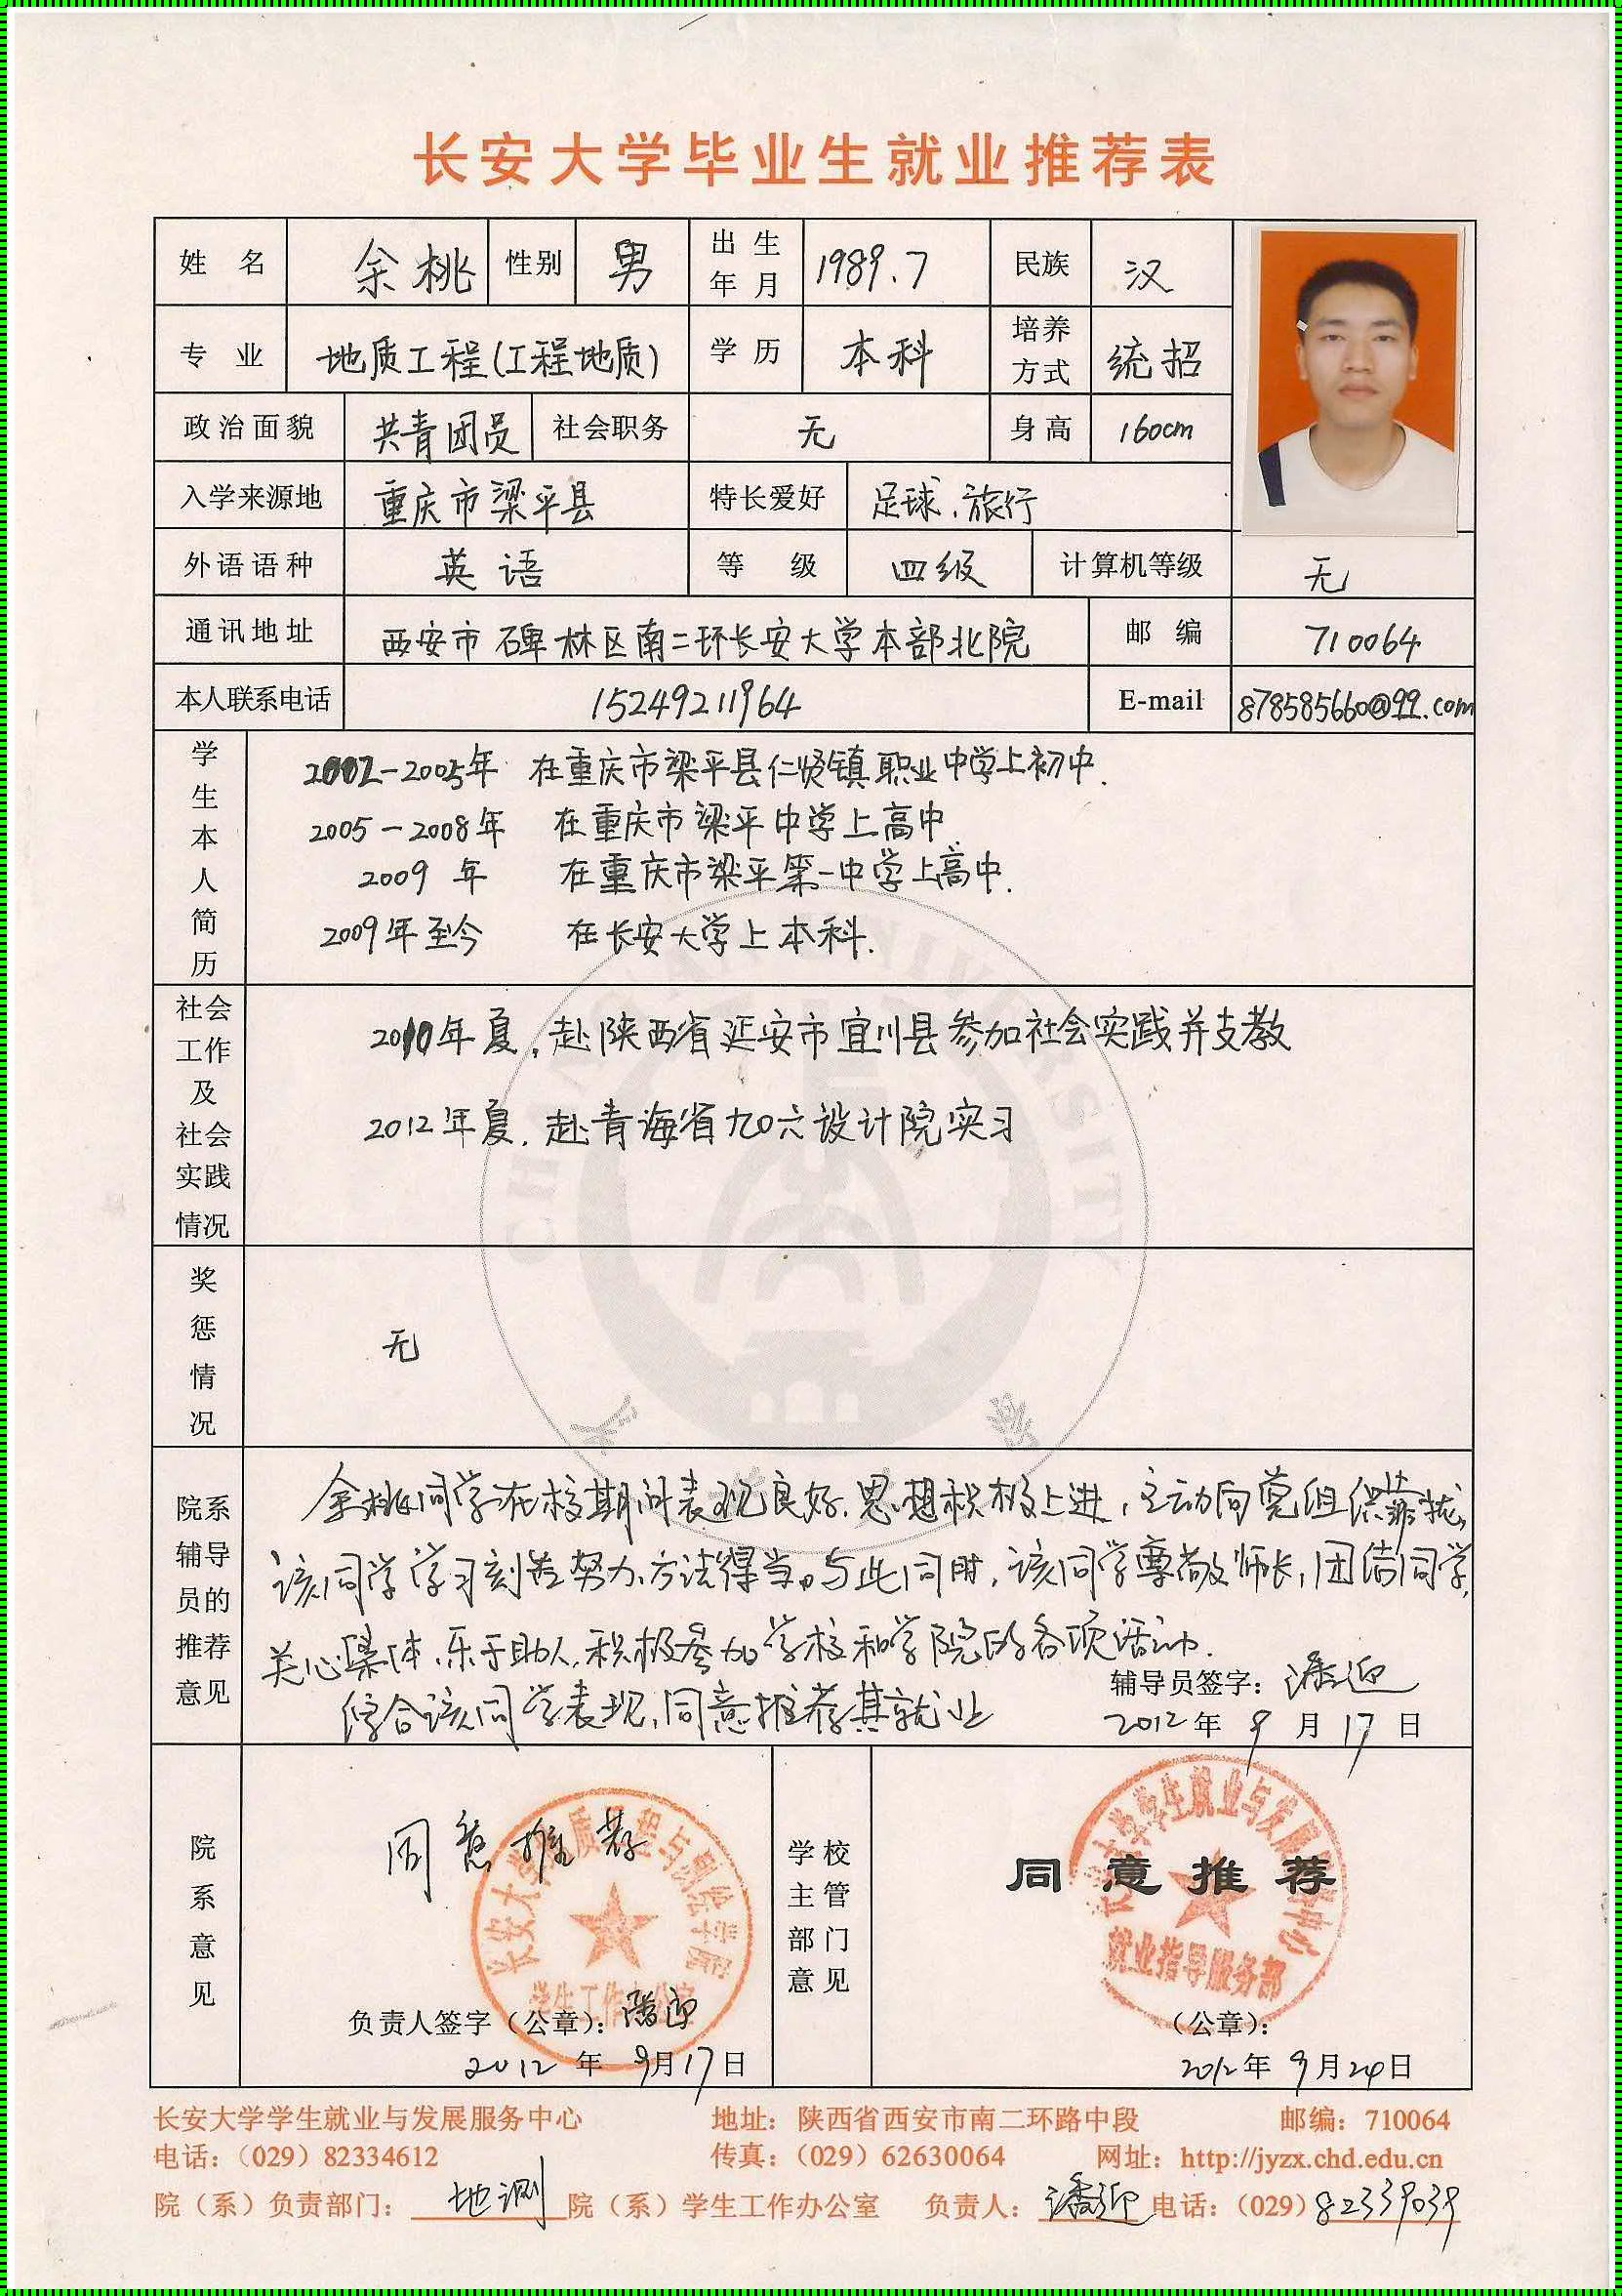 长安大学毕业生就业推荐表
姓 名 余桃 性别 男 出生年月 1989.7 民族 汉
专 业 地质工程(工程地质) 学历 本科 培养方式 统招
政治面貌 共青团员 社会职务 无 身高 160cm
入学来源地 重庆市梁平县 特长爱好 足球、旅行
外语语种 英语 等 级 四级 计算机等级 无
通讯地址 西安市碑林区南二环长安大学本部北院 邮 编 710064
本人联系电话 15249211964 E-mail 878585660@qq.com
学生本人简历
2002-2005年 在重庆市梁平县仁贤镇职业中学上初中.
2005-2008年 在重庆市梁平中学上高中.
2009年 在重庆市梁平第一中学上高中.
2009年至今 在长安大学上本科.
社会工作及社会实践情况
2010年夏,赴陕西省延安市宜川县参加社会实践并支教
2012年夏,赴青海省九0六设计院实习
CHANG'AN UNIVERSITY
奖惩情况
无
院系辅导员的推荐意见
余桃同学在校期间表现良好,思想积极上进,主动向党组织靠拢,
该同学学习刻苦努力,方法得当。与此同时,该同学尊敬师长,团结同学,
关心集体,乐于助人,积极参加学校和学院的各项活动.
综合该同学表现,同意推荐其就业
辅导员签字:潘迎
2012年9月17日
院系意见
同意推荐
长安大学地质工程与测绘学院
学生工作办公室
负责人签字(公章):潘迎
2012年9月17日
学校主管部门意见
同意推荐
长安大学学生就业与发展服务中心
就业指导服务部
(公章):
2012年9月20日
长安大学学生就业与发展服务中心 地址:陕西省西安市南二环路中段 邮编:710064
电话:(029)82334612 传真:(029)62630064 网址:http://jyzx.chd.edu.cn
院(系)负责部门:地测院(系)学生工作办公室 负责人:潘迎 电话:(029)82339039